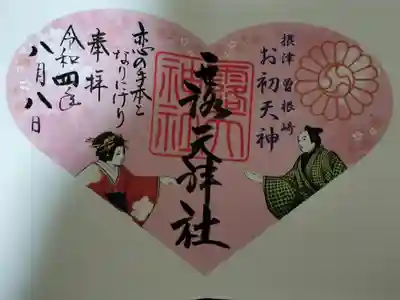 摂津 曽根崎
お初天神
露天神社
露天神社
恋の手本と
なりにけり
奉拝
令和四年
八月八日